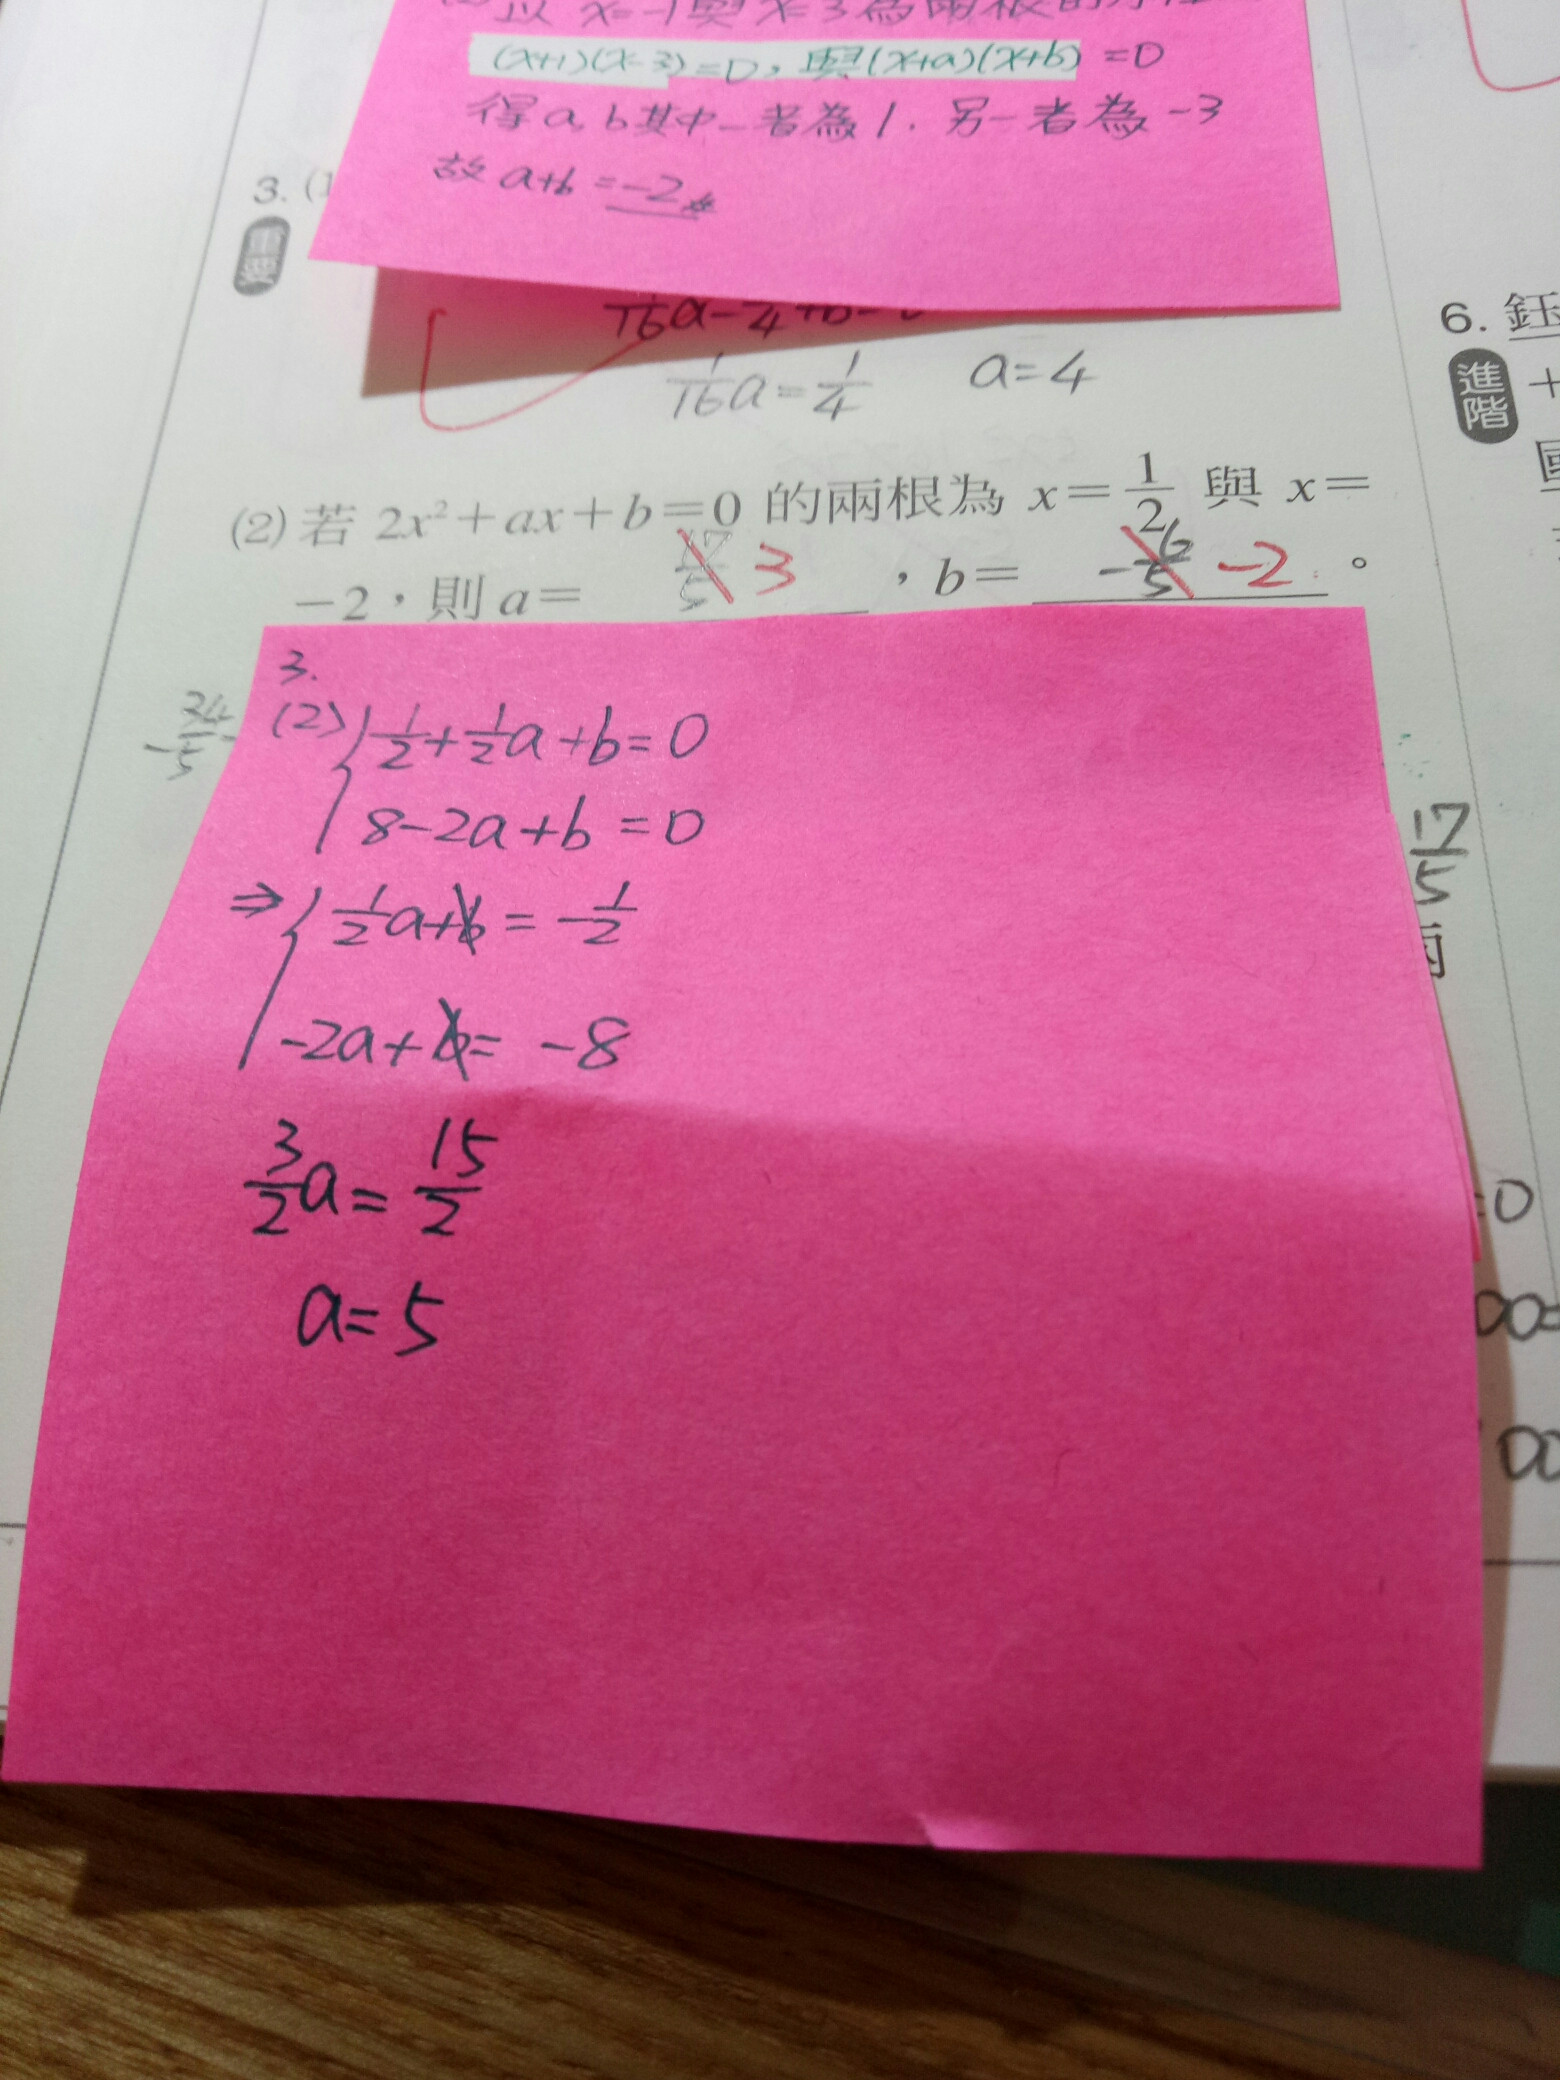 (x+1)(x-3)=0，與(x+a)(x+b)=0
得a,b其中一者為1．另一者為-3
故a+b=-2
3. (1
重要
1/16a-1/4+b=
1/16a=1/4 a=4
(2)若 2x²+ax+b=0 的兩根為 x=1/2 與 x=
-2，則 a= 17/5 3 ，b= -6/5 -2 。
3.
-34/5
(2) 1/2+1/2a+b=0
8-2a+b=0
⇒ 1/2a+b=-1/2
-2a+b=-8
3/2a=15/2
a=5
6. 鈺
進階
+
17/5
=0